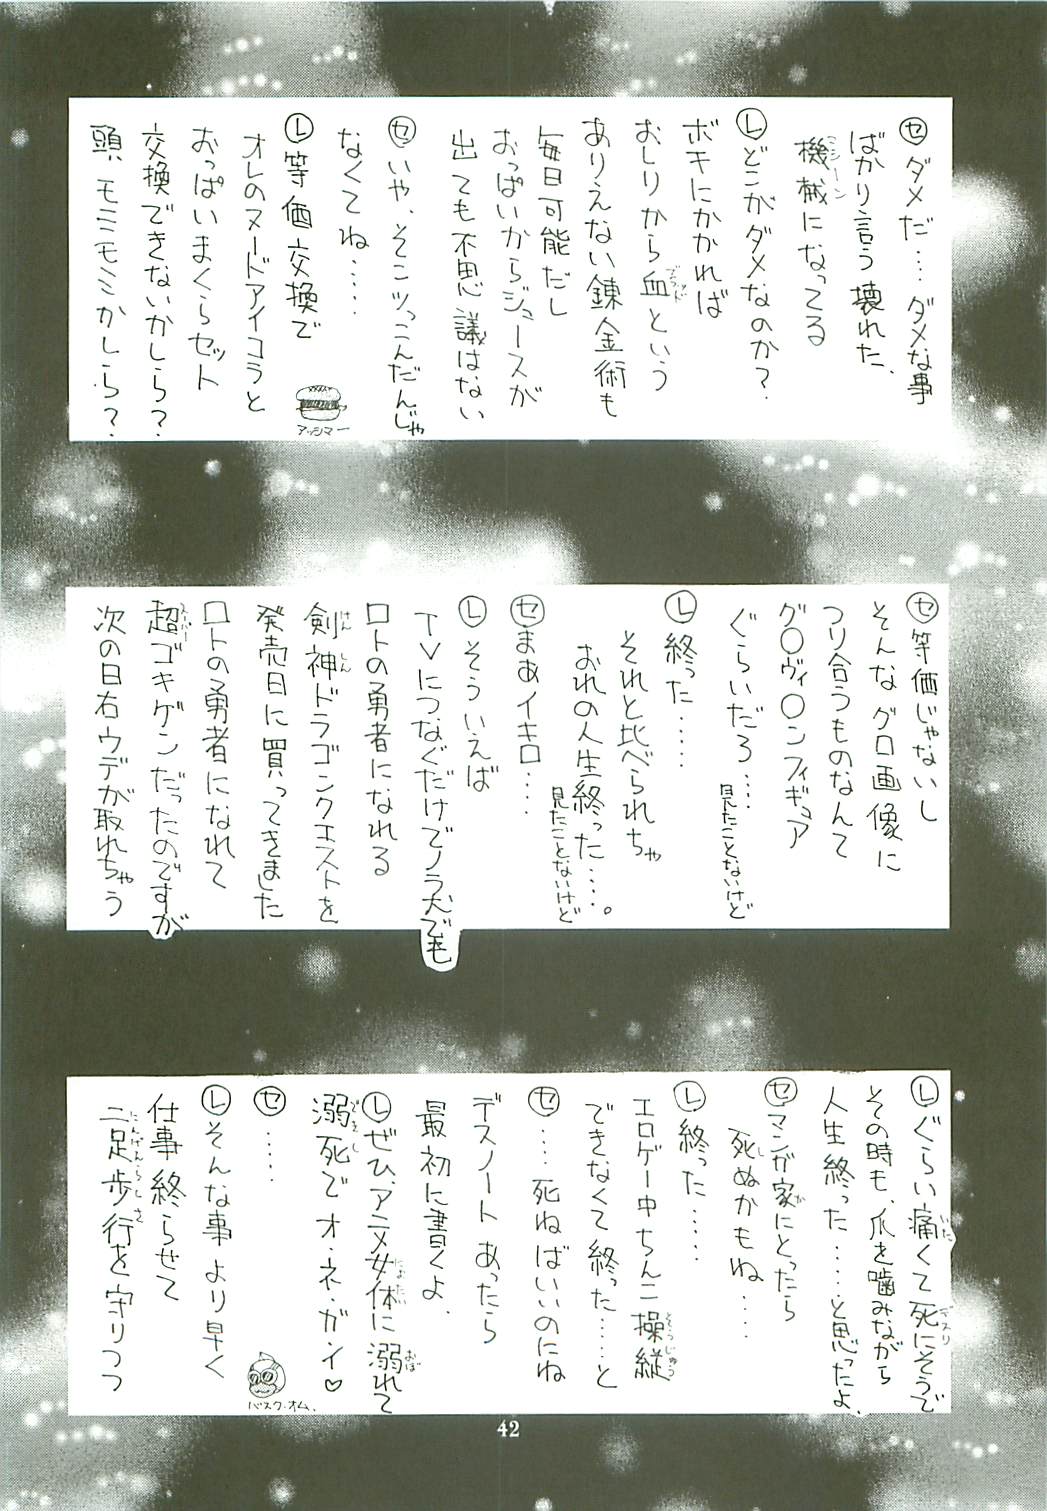 ㋝ダメだ‥‥ダメな事
ばかり言う壊れた、
機械になってる
マシーン
㋹どこがダメなのか?
ボキにかかれば
おしりから血という
ブラッド
ありえない錬金術も
毎日可能だし
おっぱいからジュースが
出ても不思議はない
㋝いや、そこツッこんだんじゃ
なくてね‥‥
㋹等価交換で
オレのヌードアイコラと
おっぱいまくらセット
交換できないかしら?
頭モミモミかしら?
アッシマー
㋝等価じゃないし
そんなグロ画像に
つり合うものなんて
グ○ヴィ○ンフィギュア
ぐらいだろ‥‥見たことないけど
㋹終った‥‥‥
それと比べられちゃ
おれの人生終った‥‥。
見たことないけど
㋝まあイキロ‥‥
㋹そういえば
TVにつなぐだけでノラ犬でも
ロトの勇者になれる
剣神ドラゴンクエストを
けんしん
発売日に買ってきました
ロトの勇者になれて
超ゴキゲンだったのですが
スーパー
次の日右ウデが取れちゃう
㋹ぐらい痛くて死にそうで
いた
デスリ
その時も、爪を噛みながら
人生終った‥‥‥と思ったよ、
㋝マンガ家にとったら
か
死ぬかもね‥‥‥
し
㋹終った‥‥‥
エロゲー中ちんこ操縦
そうじゅう
できなくて終った‥‥‥と
㋝‥‥死ねばいいのにね
デスノートあったら
最初に書くよ、
㋹ぜひ、アニメ女体に溺れて
にょたい
おぼ
溺死でオ・ネ・ガ・イ♡
できし
㋝‥‥‥
㋹そんな事より早く
仕事終らせて
二足歩行を守りつつ
にんげんらしさ
バスク・オム、
42